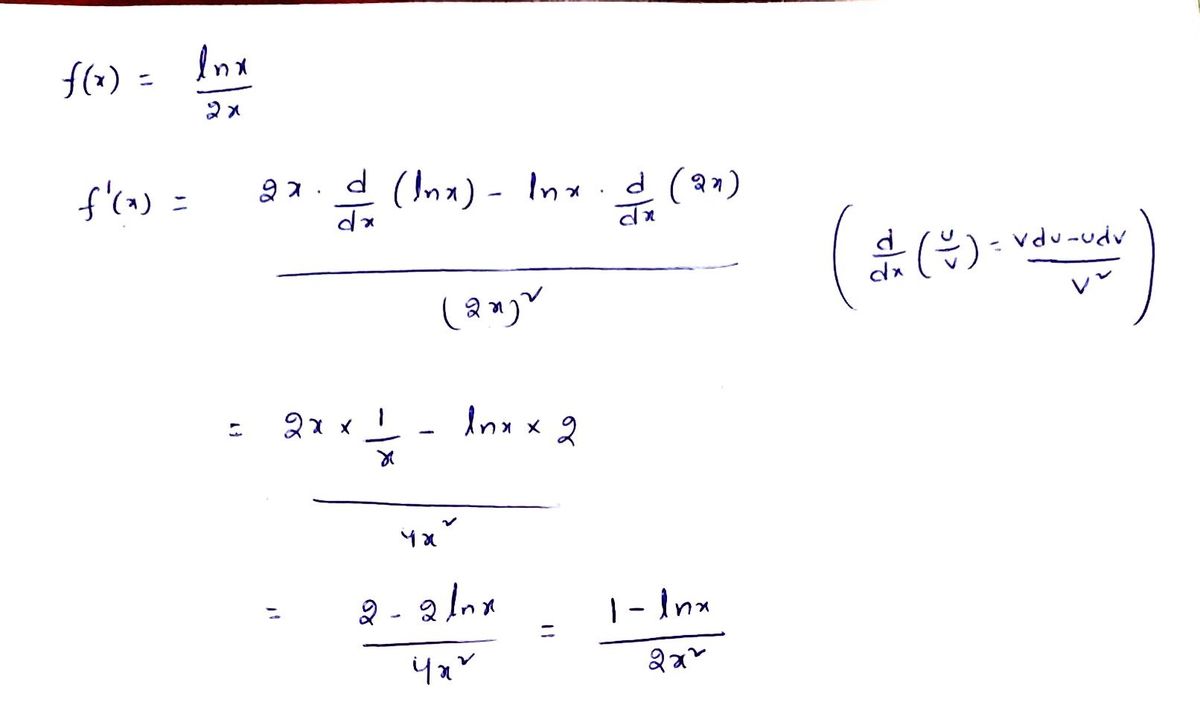 f(x) = ln x / 2x
f'(x) = (2x · d/dx (ln x) - ln x · d/dx (2x)) / (2x)²
(d/dx (u/v) = (v du - u dv) / v²)
= (2x × 1/x - ln x × 2) / 4x²
= (2 - 2 ln x) / 4x² = (1 - ln x) / 2x²